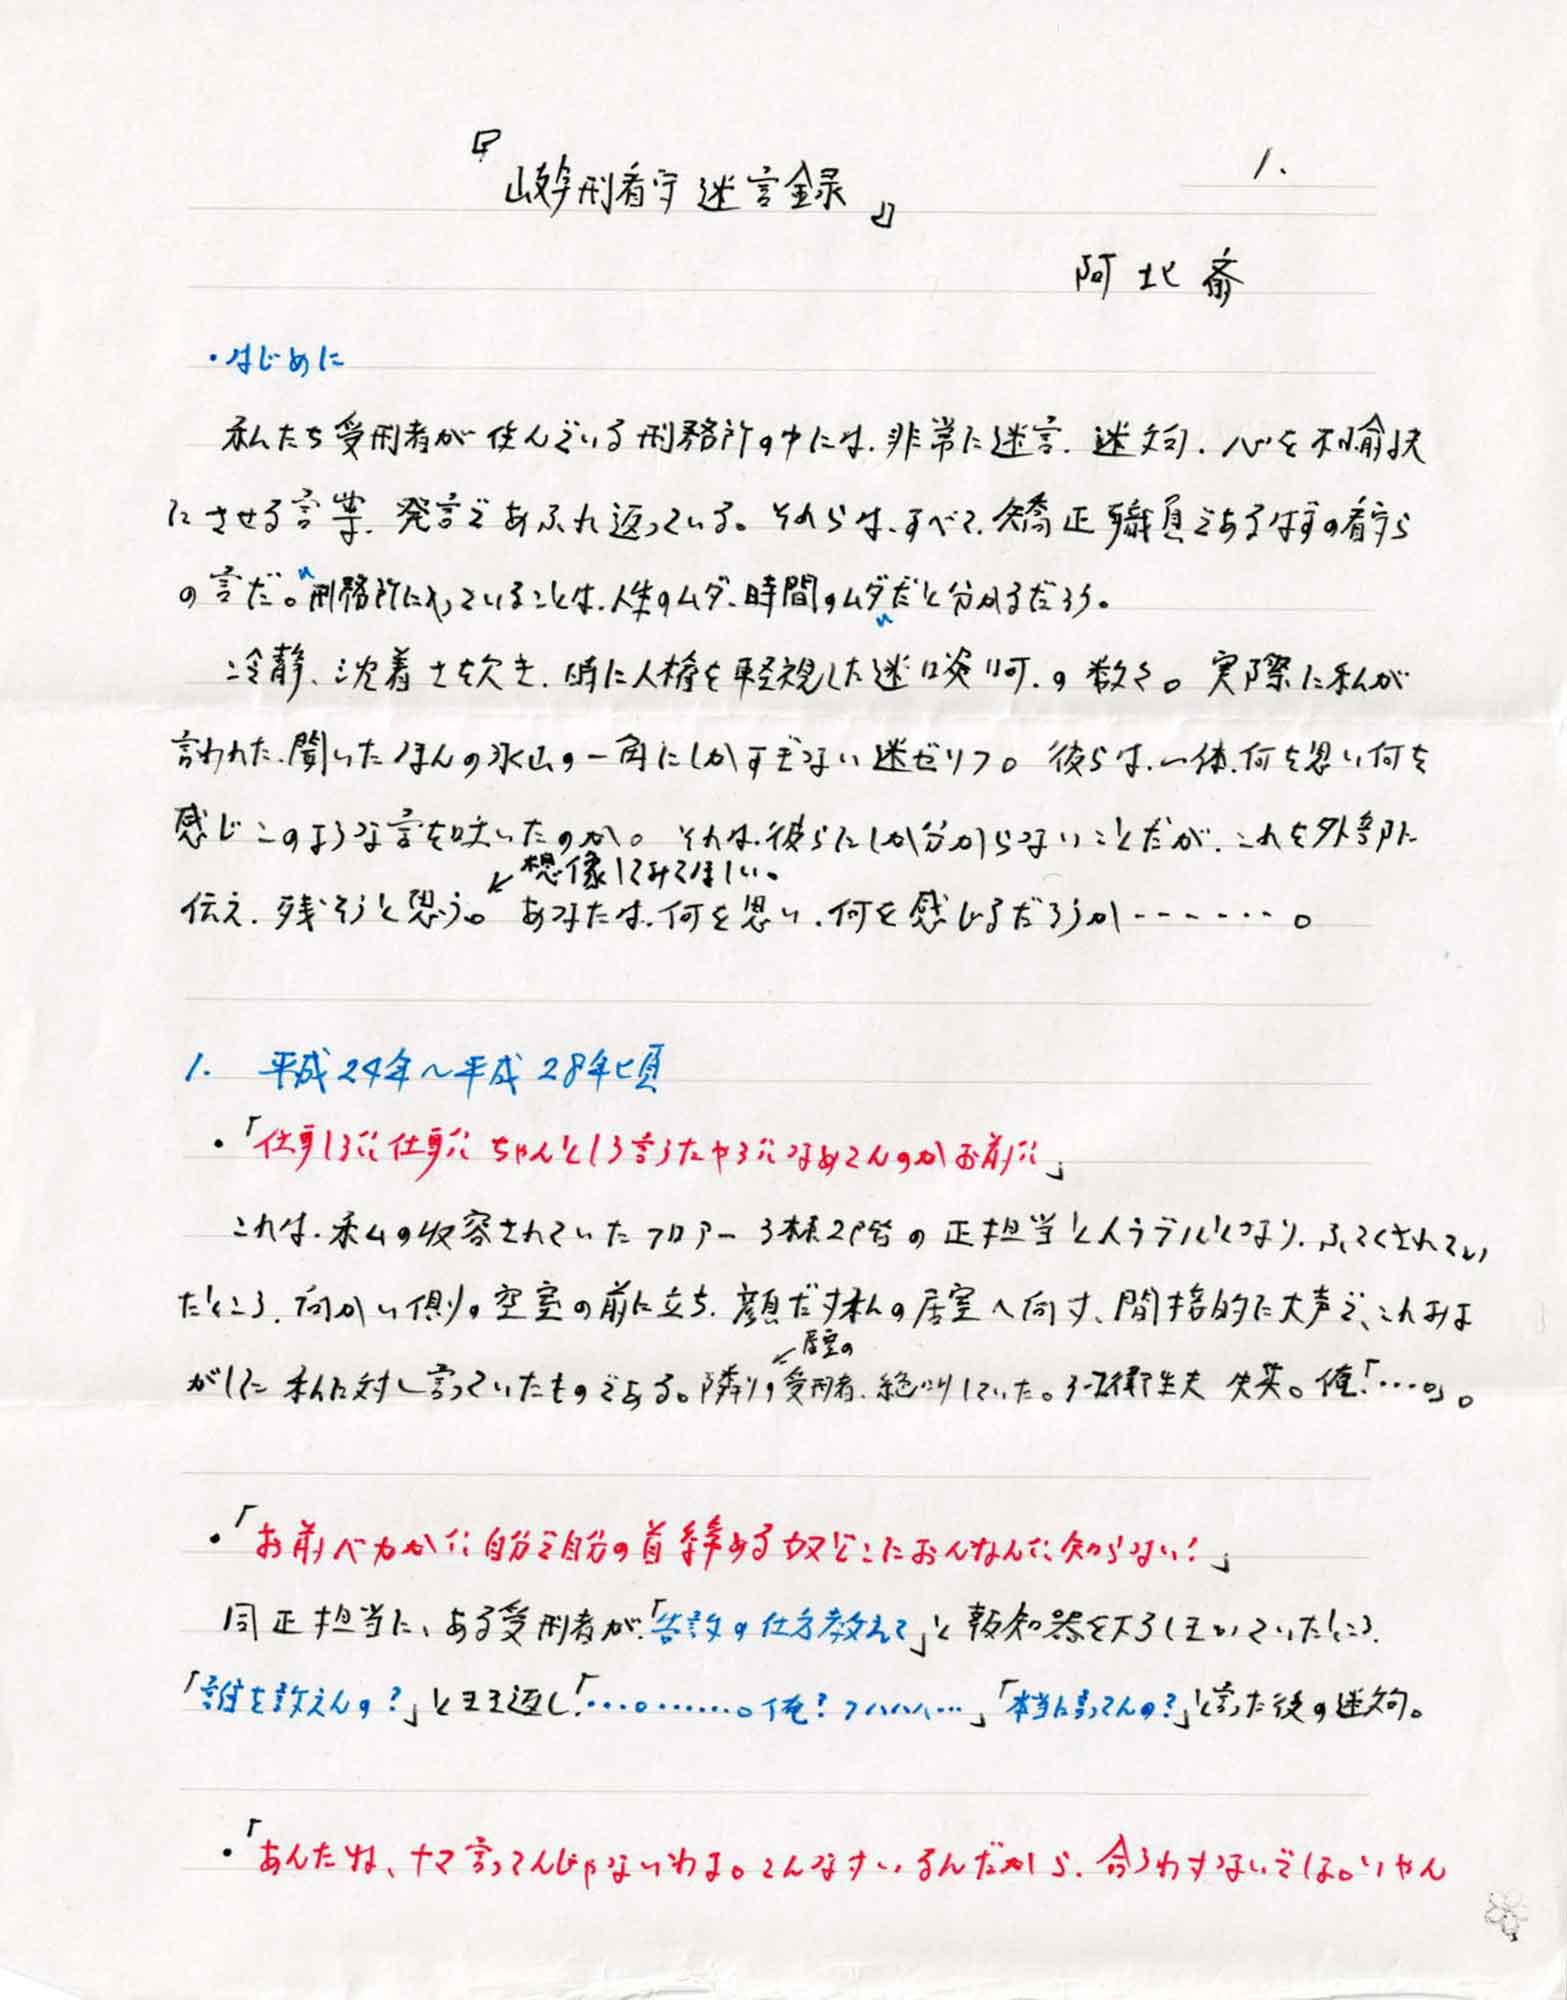 『岐刑看守 迷言録』
1.
阿北斎
・はじめに
私たち受刑者が住んでいる刑務所の中には、非常に迷言、迷文句、心を不愉快
にさせる言葉、発言であふれ返っている。それらは、すべて、矯正職員であるはずの看守ら
の言だ。"刑務所に入っていることは、人生のムダ、時間のムダ"だと分かるだろう。
冷静、沈着さを欠き、時に人権を軽視した迷啖呵、の数々。実際に私が
言われた、聞いたほんの氷山の一角にしかすぎない迷ゼリフ。彼らは、一体、何を思い何を
感じこのような言を吐いたのか。それは、彼らにしか分からないことだが、これを外部に
伝え、残そうと思う。想像してみてほしい。あなたは、何を思い、何を感じるだろうか-------。
1. 平成24年〜平成28年頃
・「仕事しろ!!仕事!! ちゃんとしろ言うたやろ!!なめてんのかお前!!」
これは、私の収容されていたフロアー3棟2階の正担当とトラブルとなり、ふてくされてい
たところ、向かい側の空室の前に立ち、顔だす私の居室へ向す、間接的に大声で、これみよ
がしに私に対し言っていたものである。隣りの居室の受刑者、絶叫していた。衛生夫 失笑。俺「…。」。
・「お前バカか!!自分で自分の首絞める奴どこにおんねんな知らない!」
同正担当に、ある受刑者が、「告訴の仕方教えて」と報知器を下ろしていたところ、
「誰を訴えんの?」と返し、「…。……。俺?フハハハ…」「本当に言ってんの?」と言った後の迷文句。
・「あんたね、ナマ言ってんじゃないわよ。